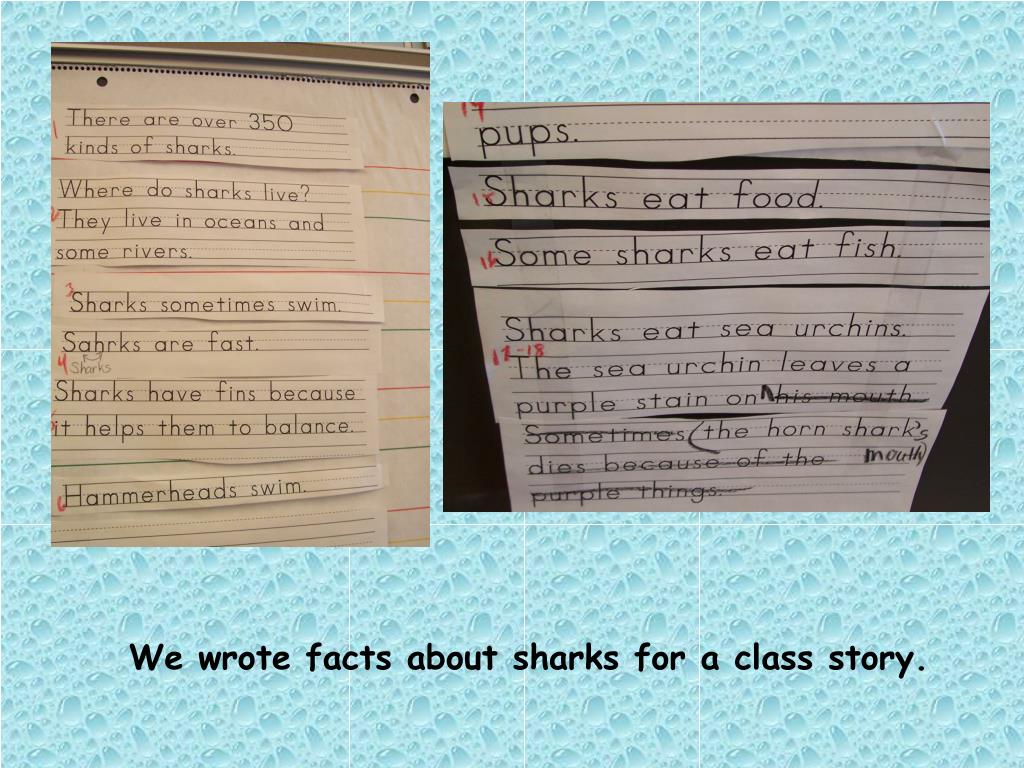 1 There are over 350
kinds of sharks.
2 Where do sharks live?
They live in oceans and
some rivers.
3 Sharks sometimes swim.
4 Sahrks are fast.
Sharks
Sharks have fins because
it helps them to balance.
6 Hammerheads swim.
17
pups.
Sharks eat food.
16 Some sharks eat fish.
Sharks eat sea urchins.
17-18 The sea urchin leaves a
purple stain on his mouth
Sometimes (the horn shark's
dies because of the mouth)
purple things.
We wrote facts about sharks for a class story.